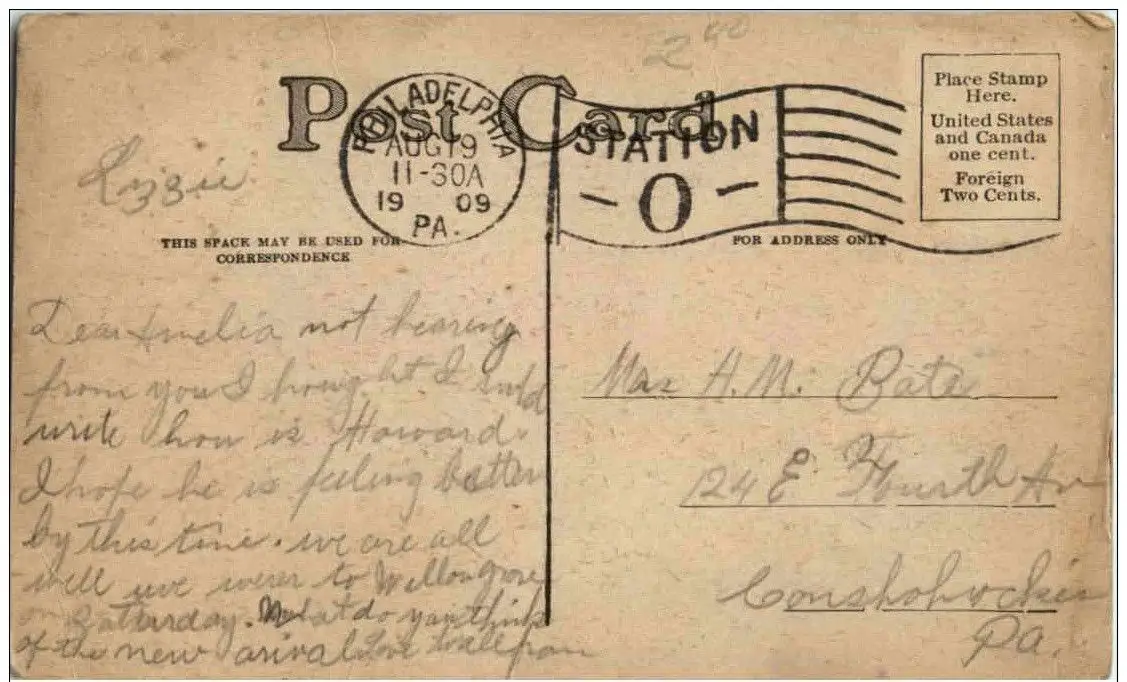 2 00
Post Card
PHILADELPHIA
AUG 19
11-30A
1909
PA.
STATION
- O -
Place Stamp
Here.
United States
and Canada
one cent.
Foreign
Two Cents.
Lizzie
THIS SPACE MAY BE USED FOR
CORRESPONDENCE
FOR ADDRESS ONLY
Dear Amelia not hearing
from you I I
write how is Howard.
I hope he is feeling better
by this time. we are all
well we werer to Willowgrove
on Satturday. What do you think
of the new arival Love to all from
Mrs H. M. Bate
124 E. Fourth Av
Conshohocken
Pa.